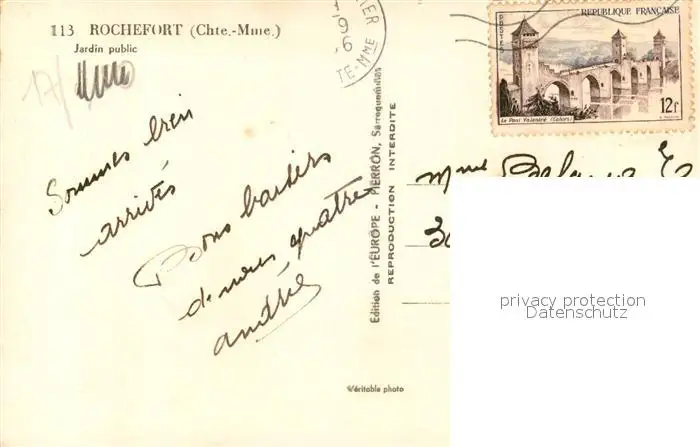 113 ROCHEFORT (Chte.-Mme.)
Jardin public
17/
Sommes bien
arrivés
Bons baisers
de nous quatre
andré
Edition de l'EUROPE - PIERRON, Sarreguemines
REPRODUCTION INTERDITE
Véritable photo
9
6
TE-Mme
POSTES
REPUBLIQUE FRANÇAISE
Le Pont Valentré (Cahors)
12f
Mme
privacy protection
Datenschutz